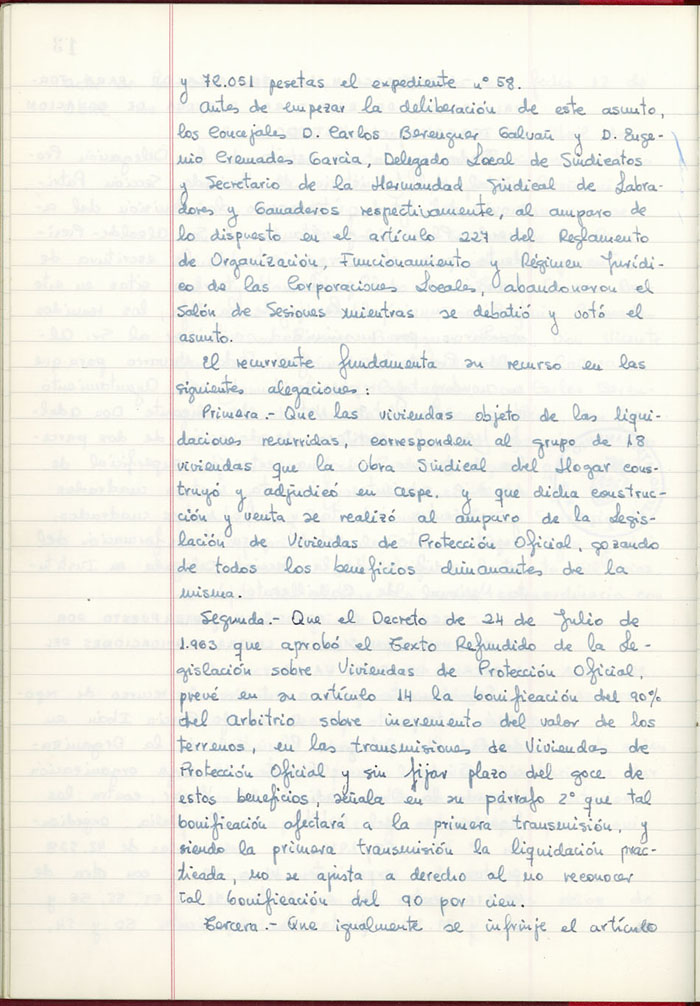 y 72.051 pesetas el expediente nº 58.
Antes de empezar la deliberación de este asunto,
los Concejales D. Carlos Berenguer Galvañ y D. Euge-
nio Cremades García, Delegado Local de Sindicatos
y Secretario de la Hermandad Sindical de Labra-
dores y Ganaderos respectivamente, al amparo de
lo dispuesto en el artículo 227 del Reglamento
de Organización, Funcionamiento y Régimen Jurídi-
co de las Corporaciones Locales, abandonaron el
Salón de Sesiones mientras se debatió y votó el
asunto.
El recurrente fundamenta su recurso en las
siguientes alegaciones:
Primera.- Que las viviendas objeto de las liqui-
daciones recurridas, corresponden al grupo de 18
viviendas que la Obra Sindical del Hogar cons-
truyó y adjudicó en Aspe, y que dicha construc-
ción y venta se realizó al amparo de la Legis-
lación de Viviendas de Protección Oficial, gozando
de todos los beneficios dimanantes de la
misma.
Segunda.- Que el Decreto de 24 de Julio de
1.963 que aprobó el Texto Refundido de la Le-
gislación sobre Viviendas de Protección Oficial,
prevé en su artículo 14 la bonificación del 90%
del Arbitrio sobre incremento del valor de los
terrenos, en las transmisiones de Viviendas de
Protección Oficial y sin fijar plazo del goce de
estos beneficios, señala en su párrafo 2º que tal
bonificación afectará a la primera transmisión, y
siendo la primera transmisión la liquidación prac-
ticada, no se ajusta a derecho al no reconocer
tal bonificación del 90 por cien.
Tercera.- Que igualmente se infrinje el artículo